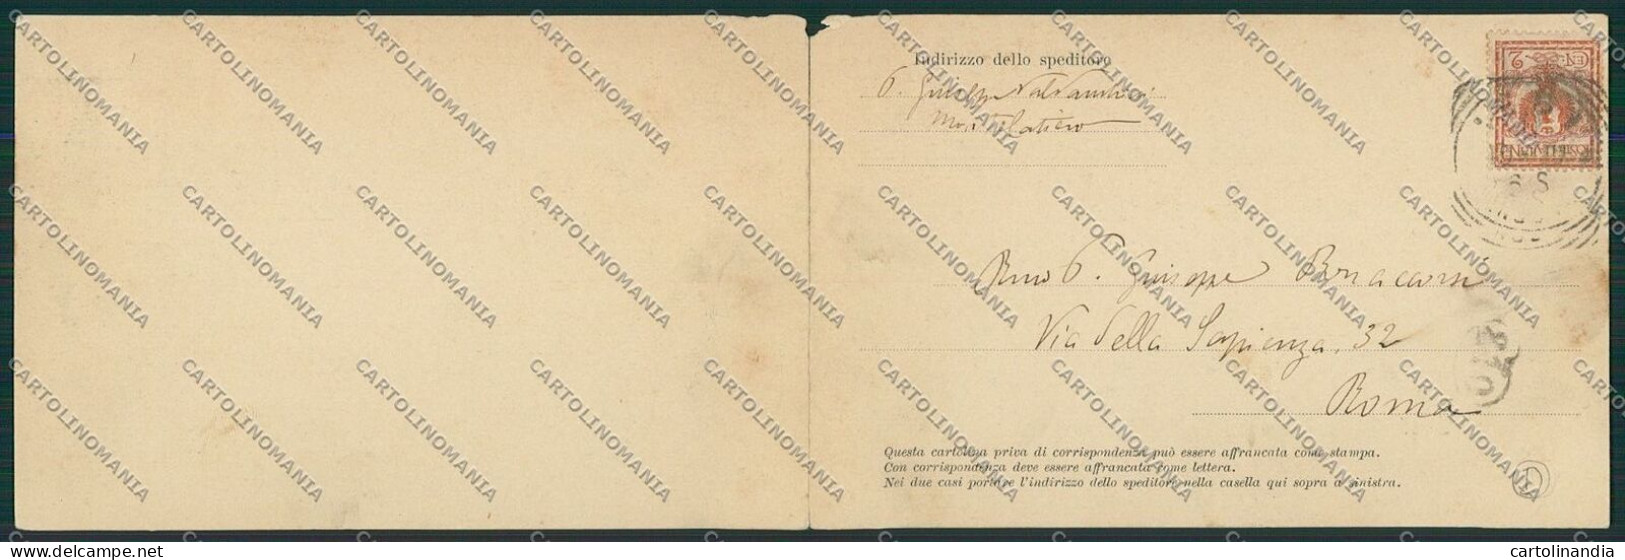 Indirizzo dello speditore
Giuseppe
CEN. 2
POSTE ITALIANE
P. Giuseppe Bracassi
Via della Sapienza, 32
Roma
Questa cartolina priva di corrispondenza può essere affrancata come stampa.
Con corrispondenza deve essere affrancata come lettera.
Nei due casi portare l'indirizzo dello speditore nella casella qui sopra a sinistra.
CARTOLINOMANIA
cartolinandia